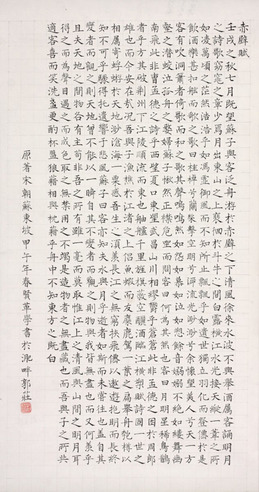 赤壁賦
壬戌之秋七月既望蘇子與客泛舟游於赤壁之下清風徐來水波不興舉酒屬客誦明月
之詩歌窈窕之章少焉月出東山之上徘徊於斗牛之間白露橫江水光接天縱一葦之所
如凌萬頃之茫然浩浩乎如馮虛御風而不知所止飄飄乎如遺世獨立羽化而登僊於是
飲酒樂甚扣舷而歌之歌曰桂棹兮蘭槳擊空明兮泝流光渺渺兮余懷望美人兮天一方
客有吹洞簫者倚歌而和之其聲嗚嗚然如怨如慕如泣如訴餘音嫋嫋不絕如縷舞幽
壑之潛蛟泣孤舟之嫠婦蘇子愀然正襟危坐而問客曰何為其然也客曰月明星稀烏鵲
南飛此非曹孟德之詩乎西望夏口東望武昌山川相繆鬱乎蒼蒼此非孟德之困於周郎
者乎方其破荊州下江陵順流而東也舳艫千里旌旗蔽空釃酒臨江橫槊賦詩固一世之
雄也而今安在哉況吾與子漁樵於江渚之上侶魚蝦而友麋鹿駕一葉之扁舟舉匏樽以
相屬寄蜉蝣於天地渺滄海之一粟哀吾生之須臾羨長江之無窮挾飛僊以遨遊抱明月而長終
知不可乎驟得託遺響於悲風蘇子曰客亦知夫水與月乎逝者如斯而未嘗往也蓋將自其
變者而觀之則天地曾不能以一瞬自其不變者而觀之則物與我皆無盡也而又何羨乎
且夫天地之間物各有主苟非吾之所有雖一毫而莫取惟江上之清風與山間之明月耳
得之而為聲目遇之而成色取之無禁用之不竭是造物者之無盡藏也而吾與子之所共
適客喜而笑洗盞更酌肴核既盡杯盤狼藉相與枕藉乎舟中不知東方之既白
原著宋朝蘇東坡 甲午年春賢草學書於 畔郭莊